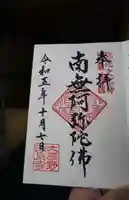 奉拝
南無阿弥陀佛
令和五年十月七日